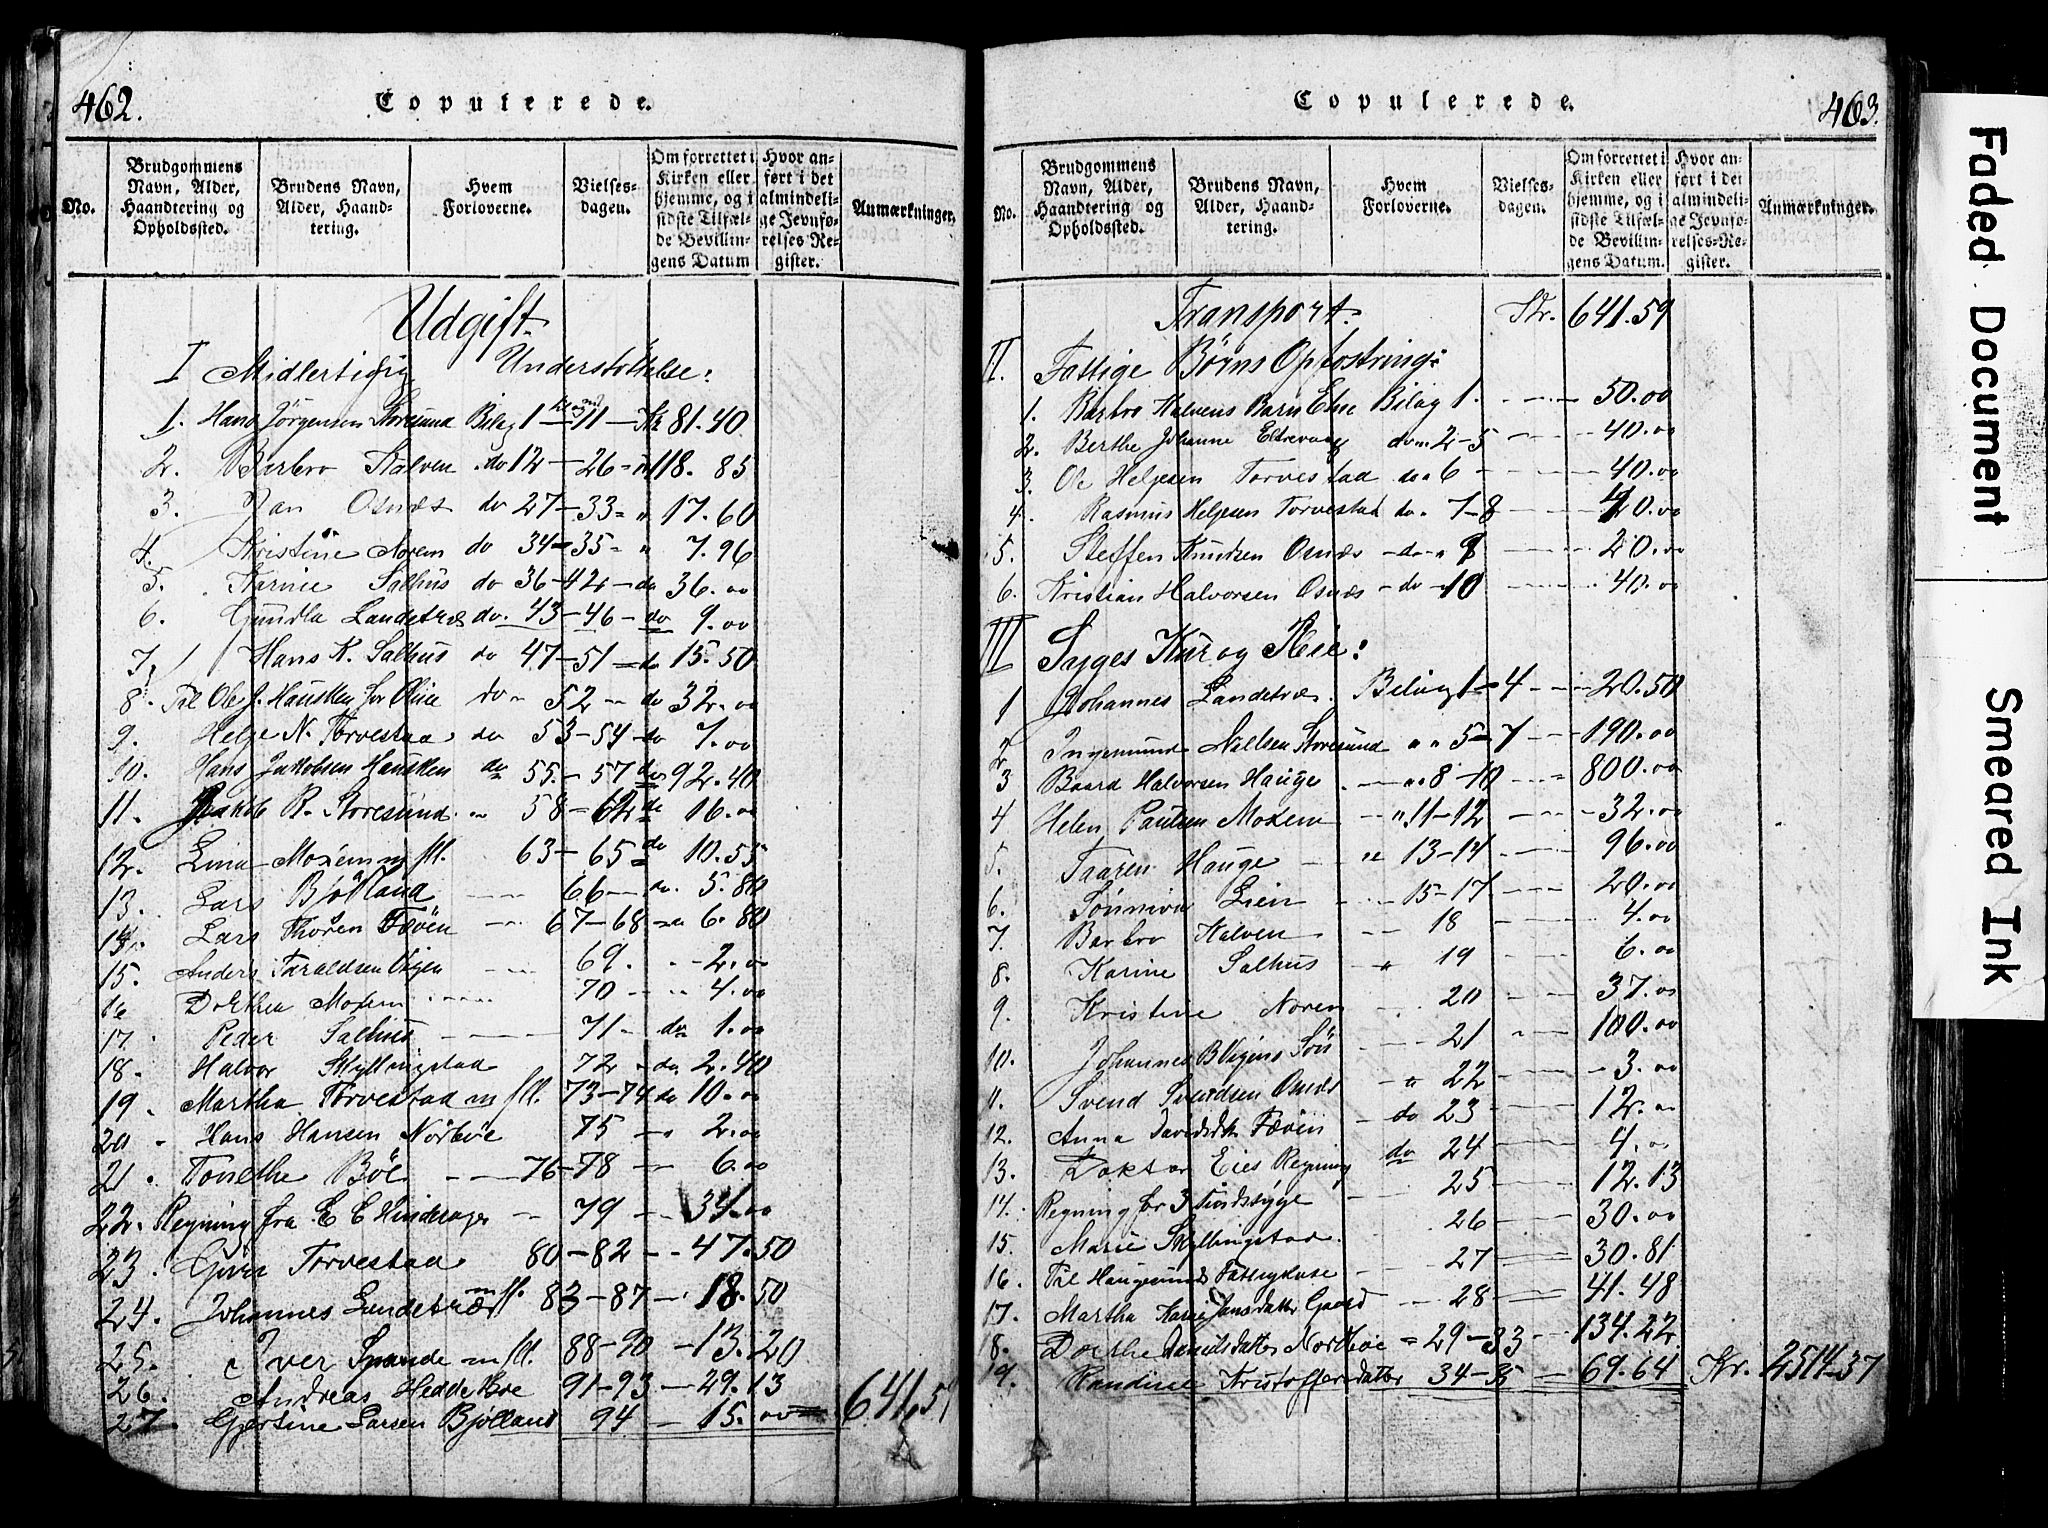 462.
Copulerede.
No.
Brudgommens Navn, Alder, Haandtering og Opholdssted.
Brudens Navn, Alder, Haandtering.
Hvem Forloverne.
Vielsesdagen.
Om forrettet i Kirken eller hjemme, og i sidste Tilfælde Bevilingens Datum
Hvor anført i det almindelige Jevnførelses Register.
Anmærkninger.
Udgift
I Midlertidig Understøttelse:
1. Hans Jørgensen Storesund Bilag 1 – 11 – Kr 81.40
2. Barbro Kalven do 12 – 26 – " 118.85
3. Jan Osnæs do 27 – 33 – " 17.60
4. Kristine Norem do 34 – 35 – " 7.96
5. Karine Salhus do 36 – 42 – do 36.00
6. Gundla Landetræ do. 43 – 46 – do 9.00
7. Hans K. Salhus do 47 – 51 – do 15.50
8. Til Ole J. Hausken for Oline do – 52 – do 32.00
9. Helge N. Torvestad do 53 – 54 – do 7.00
10. Hans Jakobsen Hausken do 55 – 57 do 92.40
11. Jakob R. Storesund " 58 – 62 do 16.00
12. Lina Moxem m fl. 63 – 65 do 10.55
13. Lars Bjølland 66 – do. 5.80
14. Lars Thoren Fæøen 67 – 68 – do 6.80
15. Anders Taraldsen 69. " 2.00
16 Dorthea Moxem 70 – " 4.00
17. Peder Salhus 71 – do 1.00
18. Halvor Skyllingstad 72 – do 2.40
19. Martha Torvestad m fl. 73 – 74 do 10.00
20. Hans Hansen Nordbøe 75 – " 2.00
21. Tonethe Bøe 76 – 78 – 6.00
22. Regning fra E E Hinderager – 79 – 34.00
23. Giver Torvestad 80 – 82 – 47.50
24. Johannes Landetræ m fl. 83 – 87 – 18.50
25. Iver Spande m fl. 88 – 90 – 13.20
26. Andreas Hedde 91 – 93 – 29.13
27 Gjertine Larsen Bjølland 94 – 15.00 641,59
Copulerede.
463.
No.
Brudgommens Navn, Alder, Haandtering og Opholdssted.
Brudens Navn, Alder, Haandtering.
Hvem Forloverne.
Vielsesdagen.
Om forrettet i Kirken eller hjemme, og i sidste Tilfælde Bevilingens Datum.
Hvor anført i det almindelige Jevnførelses-Register.
Anmærkninger.
Transport. Kr. 641.59
II. Fattige Børns Opfostring:
1. Barbro Kalvens Barn Elne Bilag 1. – 50.00
2. Berthe Johanne Eltrevaag do " 2 – 5 – 40.00
3. Ole Helgesen Torvestad do " 6 – 40.00
4. Rasmus Helgesen Torvestad do " 7 – 8 – 40.00
5. Steffen Knudsen Osnæs – do " 9 – 20.00
6. Kristian Halvorsen Osnæs – do – 10 – 40.00
III Syges Kur og Pleie:
1 Johannes Landetræ. Bilag 1 – 4 – 20.50
2 Ingemund Nilsen Storesund " " 5 – 7 – 190.00
3 Baard Halvorsen Hauge " 8 – 10 – 800.00
4 Helen Paulsen Moxem " 11 – 12 – 32.00
5. Taaren Hauge " 13 – 14 – 96.00
6. Sønniva Lien 15 – 17 – 20.00
7. Barbro Kalven 18 – 4.00
8. Karine Salhus " 19 – 6.00
9. Kristine Norem 20 – 37.00
10. Johannes B Vigens Søn 21 – 100.00
11. Svend Svendsen Osnæs " 22 – 3.00
12. Anna Davidsdtr Fæøen do 23 – 12.00
13. Doktor Eies Regning do 24 – 4.00
14. Regning for 3 Sindssyge – 25 – 12.13
15. Marie Skyllingstad – 26 – 30.00
16. Til Haugesunds Fattigkasse – 27 – 30.81
17. Martha Karine Jansdatter Gaard – 28 – 41.48
18. Dorthe Danielsdatter Nordbøe – 29 – 33 – 134.22
19. Randine Kristoffersdatter 34 – 35 – 69.64 Kr. 2514.37
Faded Document
Smeared Ink